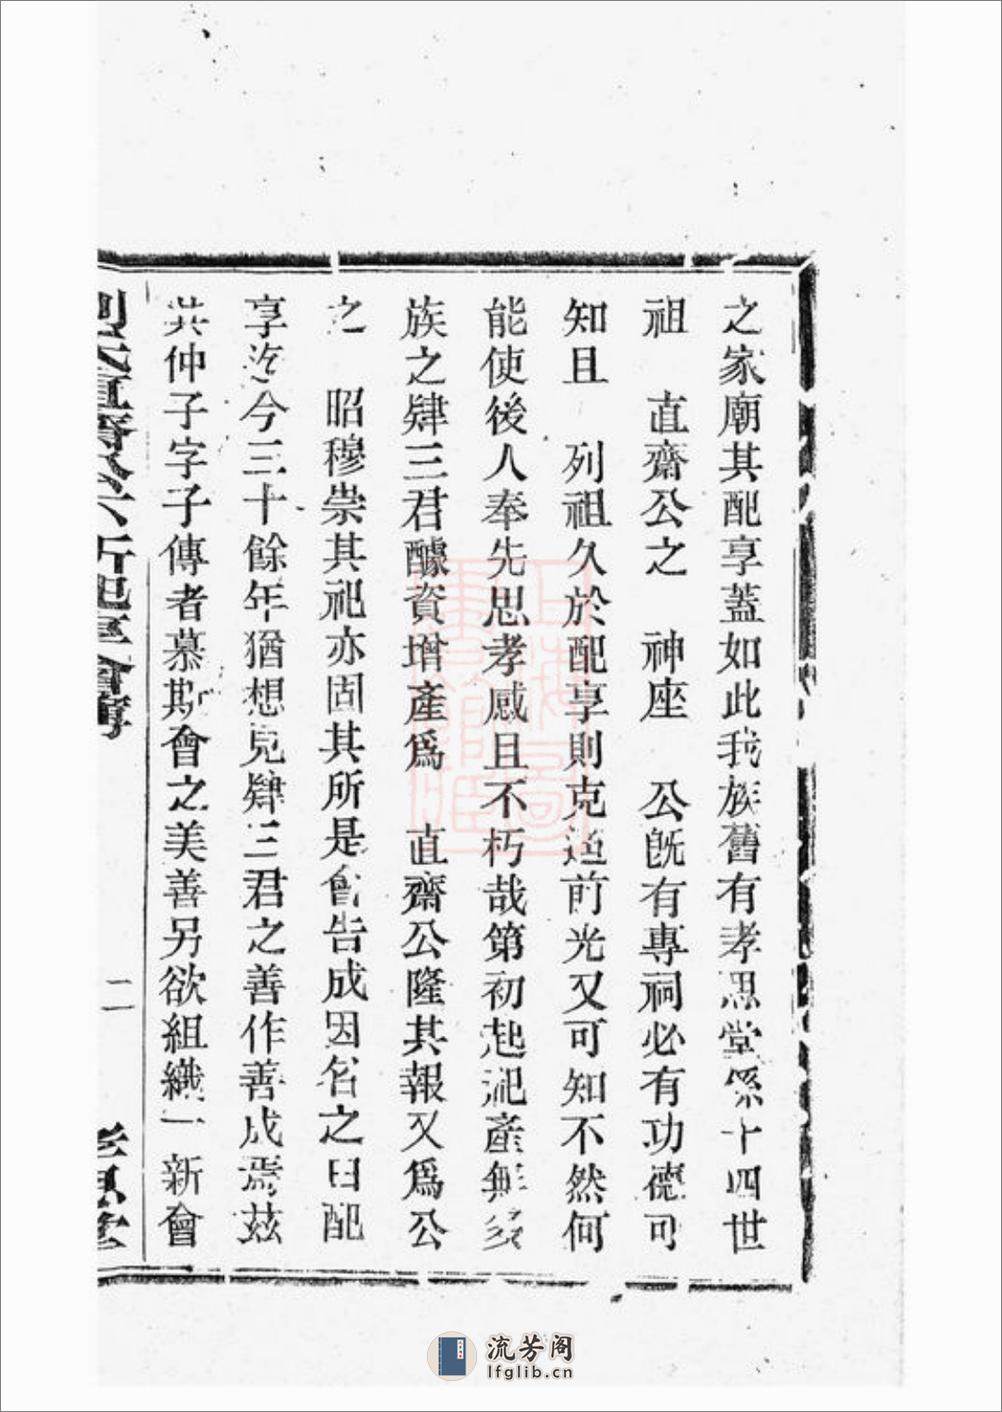 之家廟其配享蓋如此我族舊有孝思堂係十四世
祖　直齋公之　神座　公既有專祠必有功德可
知且　列祖久於配享則克迪前光又可知不然何
能使後人奉先思孝感且不朽哉第初起祀產無多
族之肄三君醵資增產爲　直齋公隆其報又爲公
之　昭穆崇其祀亦固其所是會告成因名之曰配
享迄今三十餘年猶想見肄三君之善作善成焉茲
共仲子字子傳者慕斯會之美善另欲組織一新會
二
孝思堂
上海圖書館藏
流芳阁
lfglib.cn